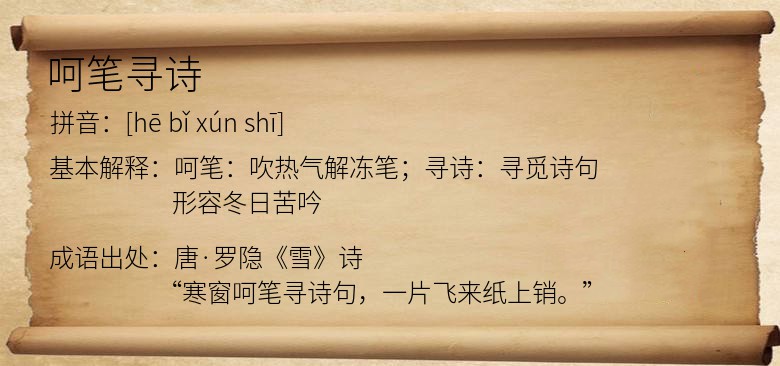 呵笔寻诗
拼音：[hē bǐ xún shī]
基本解释：呵笔：吹热气解冻笔；寻诗：寻觅诗句
形容冬日苦吟
成语出处：唐·罗隐《雪》诗
“寒窗呵笔寻诗句，一片飞来纸上销。”